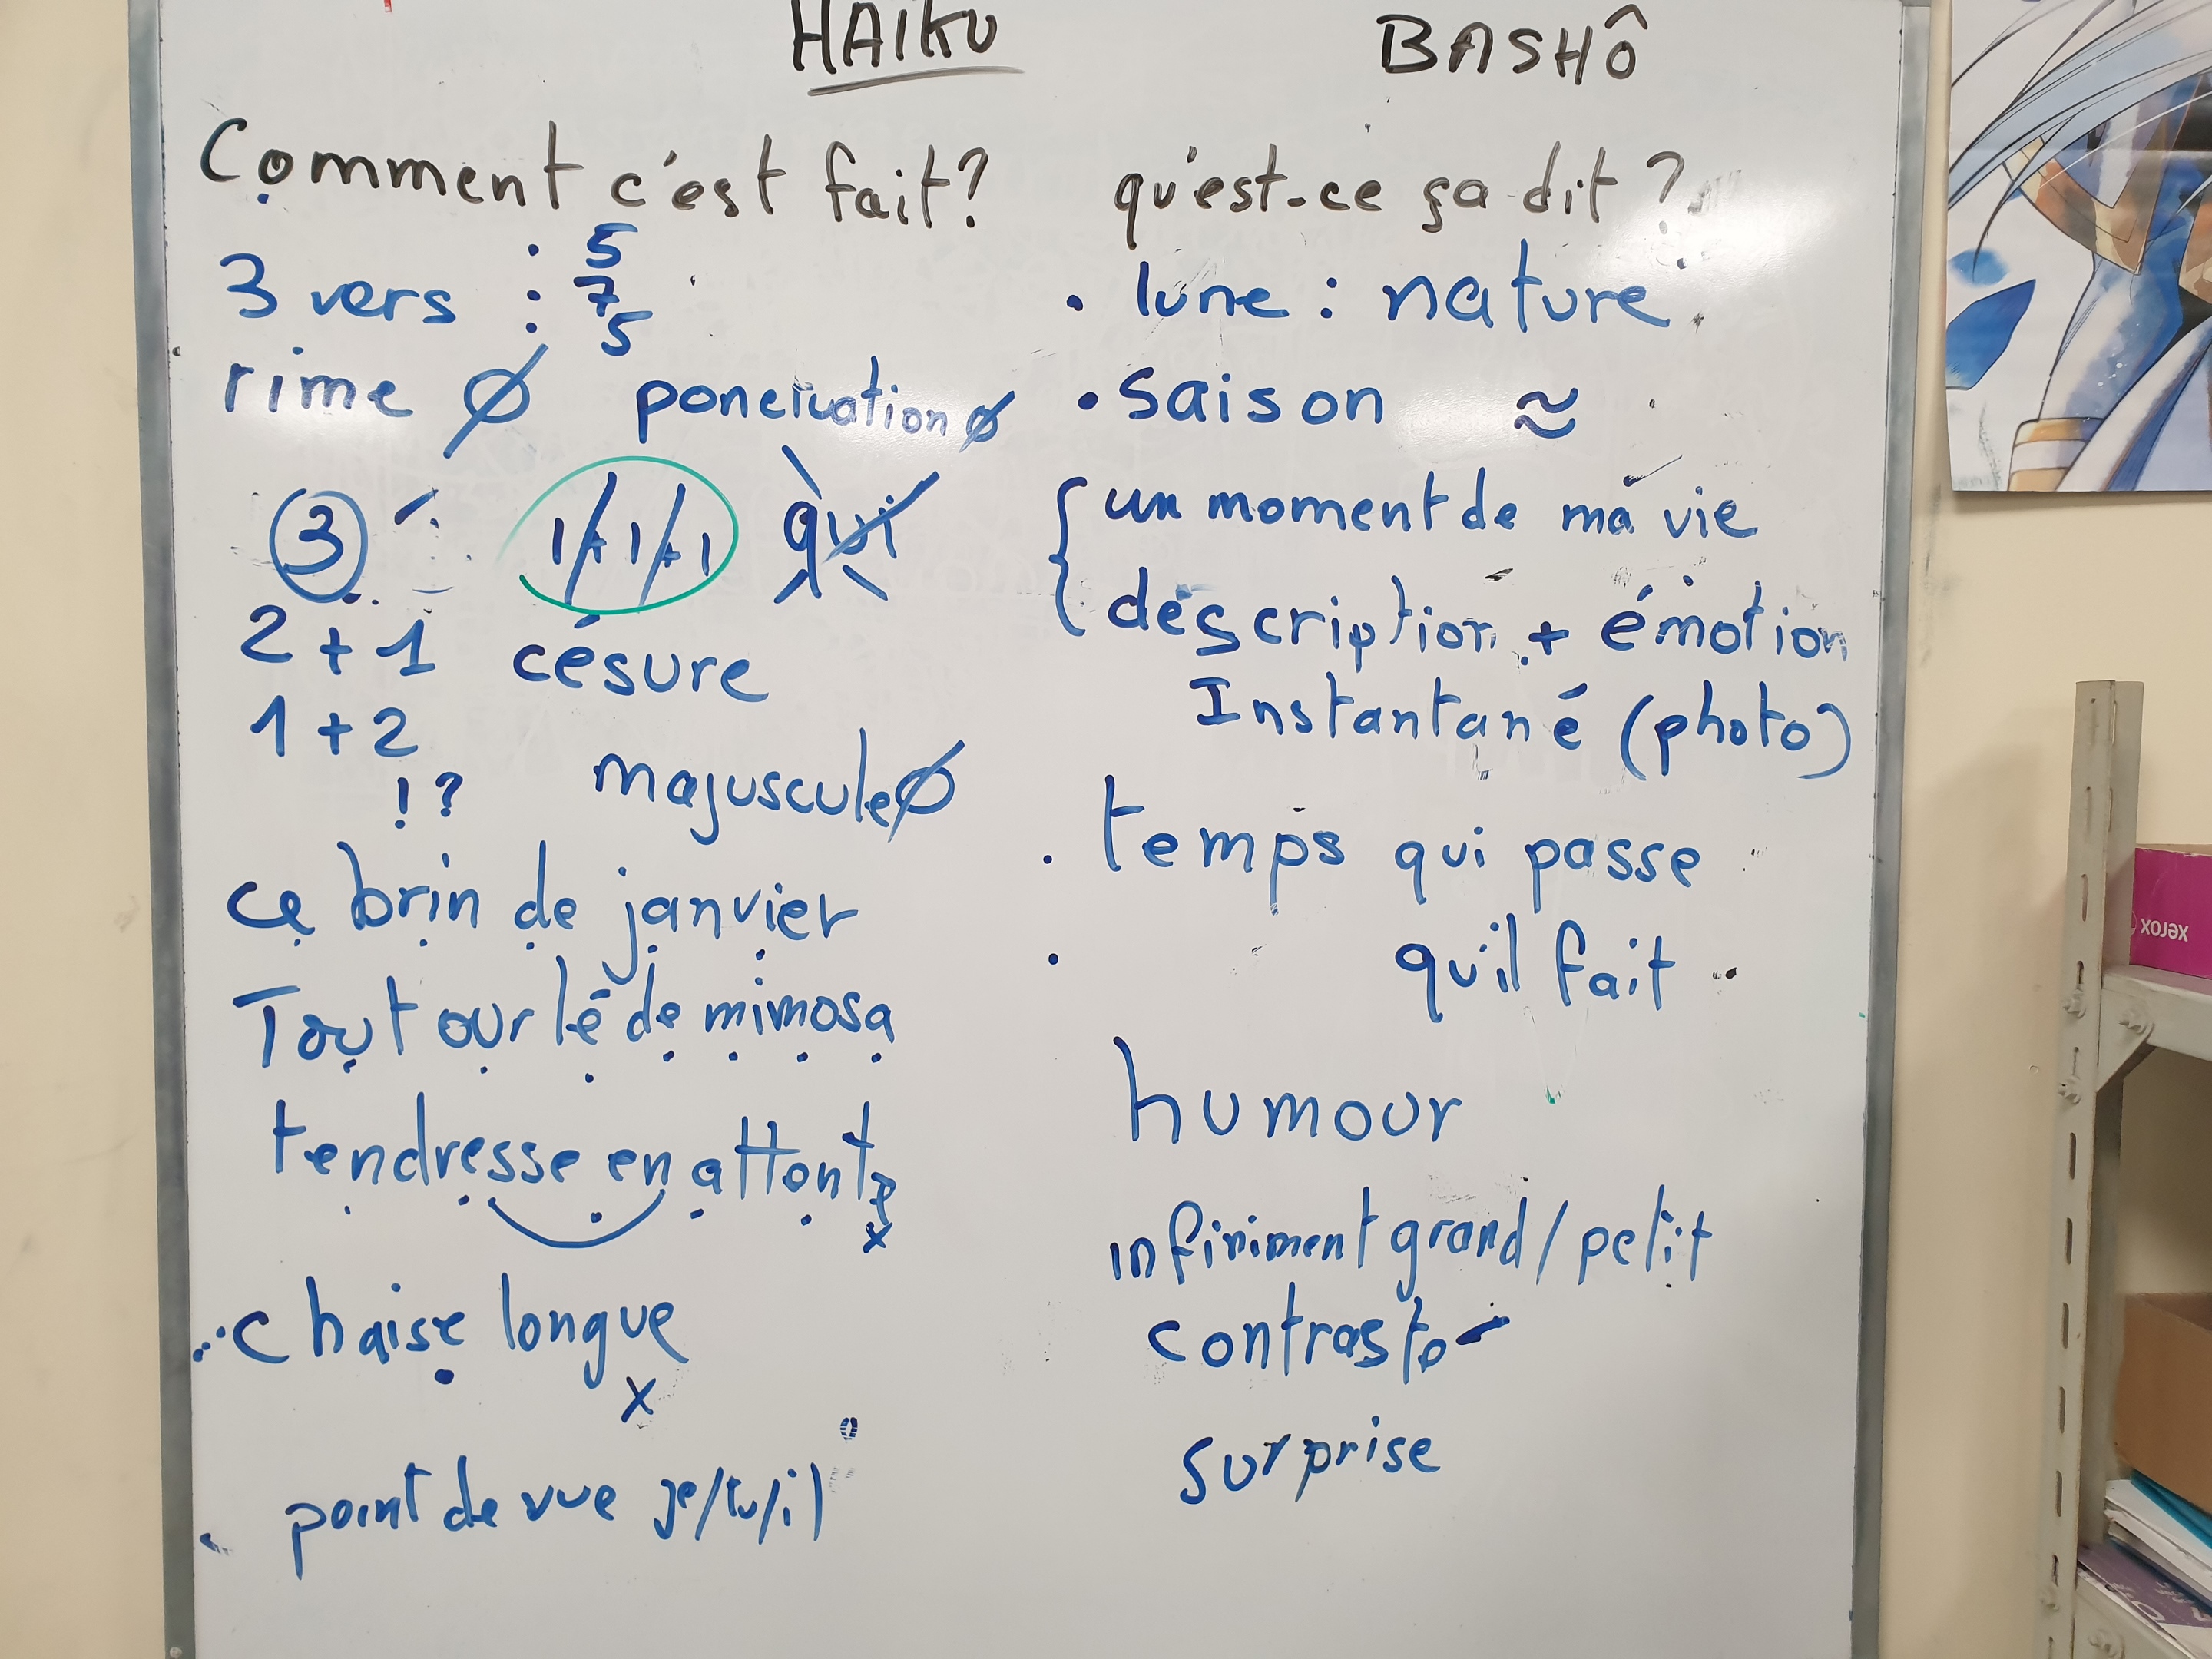 HAIKU
BASHÔ
Comment c'est fait?
3 vers : 5
7
5
rime Ø ponctuation Ø
3 1/1/1 qui
2 + 1 césure
1 + 2
! ? majuscule Ø
ce brin de janvier
Tout ourlé de mimosa
tendresse en attente
x
chaise longue
x
point de vue je/tu/il
qu'est-ce ça dit ?
• lune : nature
• saison ≈
{ un moment de ma vie
description + émotion
Instantané (photo)
• temps qui passe
• qu'il fait
humour
infiniment grand / petit
contraste
surprise
xerox